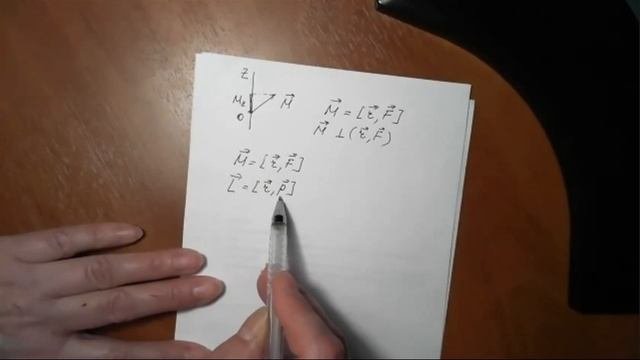 Z
M⃗
M_z
O
M⃗ = [r⃗, F⃗]
M⃗ ⊥ (r⃗, F⃗)
M⃗ = [r⃗, F⃗]
L⃗ = [r⃗, p⃗]